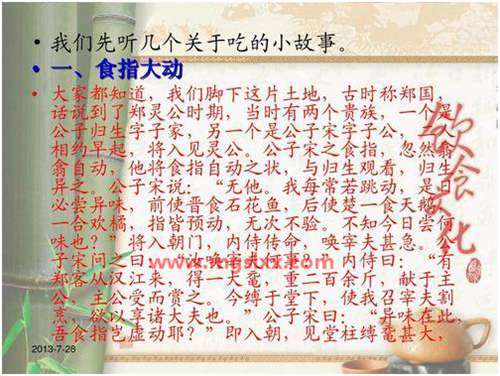 我们先听几个关于吃的小故事。
一、食指大动
大家都知道，我们脚下这片土地，古时称郑国，
话说到了郑灵公时期，当时有两个贵族，一个是
公子归生字子家，另一个是公子宋字子公，二人
相约早起，将入见灵公。公子宋之食指，忽然翕
翕自动，他将食指自动之状，与归生观看，归生
异之。公子宋说：“无他。我每常若跳动，是日
必尝异味，前使晋食石花鱼，后使楚一食天鹅，
一合欢橘，指皆预动，无次不验。不知今日尝何
味也？”将入朝门，内侍传命，唤宰夫甚急。公
子宋问之曰：“汝唤宰夫何事？”内侍曰：“有
郑客从汉江来，得一大鼋，重二百余斤，献于主
公，主公受而赏之。今缚于堂下，使我召宰夫割
烹，欲以享诸大夫也。”公子宋曰：“异味在此，
吾食指岂虚动耶？”即入朝，见堂柱缚鼋甚大，
饮食文化
2013-7-28